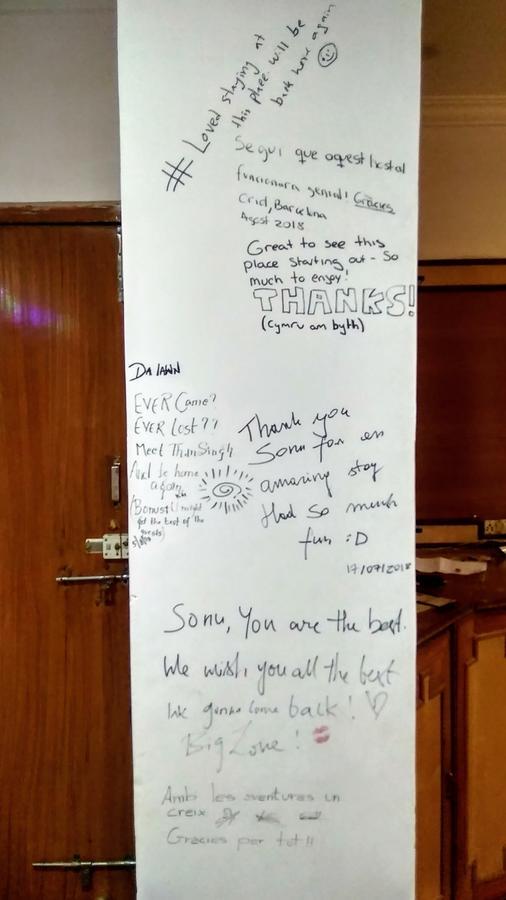 # Loved staying at
this place will be
back here again
Segui que aquest hostal
funcionarà genial! Gràcies
Barcelona
Agost 2018
Great to see this
place starting out - So
much to enjoy!
THANKS!
(Cymru am byth)
DA IAWN
EVER Came?
EVER Lost??
Meet ThimSingh
And be home
again
(Bonus: U might
get the best of the
guests)
Thank you
Sonu for an
amazing stay
Had so much
fun :D
17/07/2018
Sonu, You are the best.
We wish you all the best
We gonna come back!
Big Love!
Amb les aventures un
creix
Gracies per tot!!